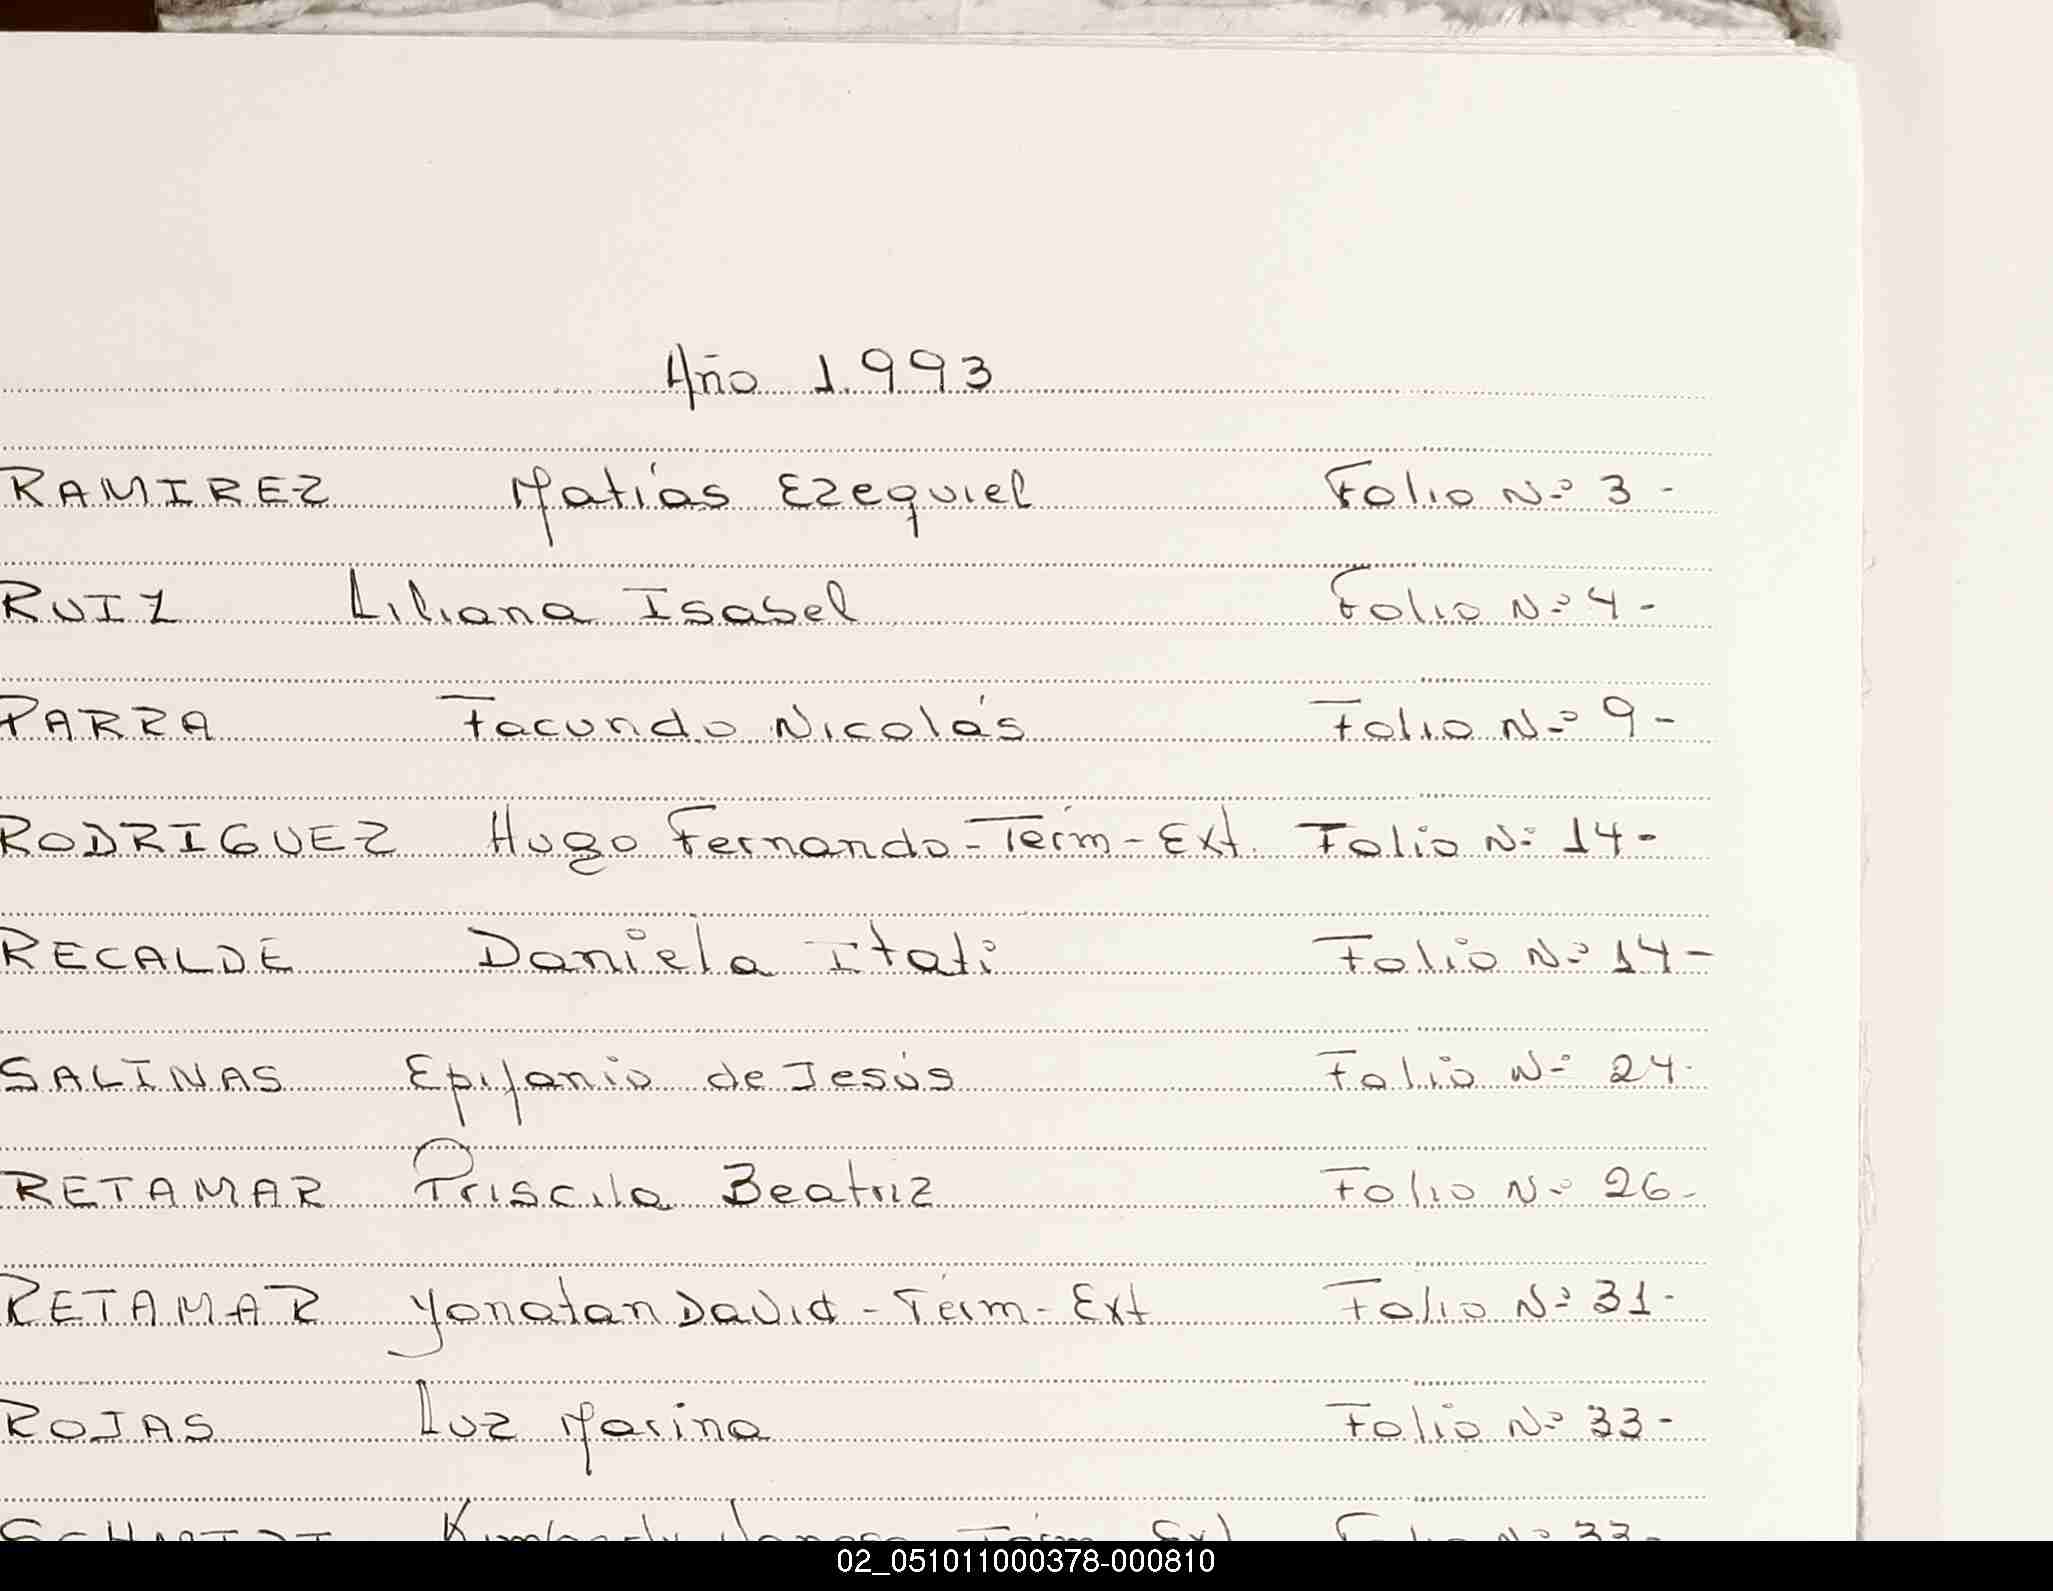 Año 1.993
RAMIREZ Matías Ezequiel Folio Nº 3 -
RUIZ Liliana Isabel Folio Nº 4 -
PARRA Facundo Nicolás Folio Nº 9 -
RODRIGUEZ Hugo Fernando - Térm - Ext. Folio Nº 14 -
RECALDE Daniela Itati Folio Nº 14 -
SALINAS Epifanio de Jesús Folio Nº 24.
RETAMAR Priscila Beatriz Folio Nº 26 -
RETAMAR Yonatan David - Térm - Ext Folio Nº 31 -
ROJAS Luz Marina Folio Nº 33 -
SCHMIDT Térm Ext Folio Nº 33 -
02_051011000378-000810